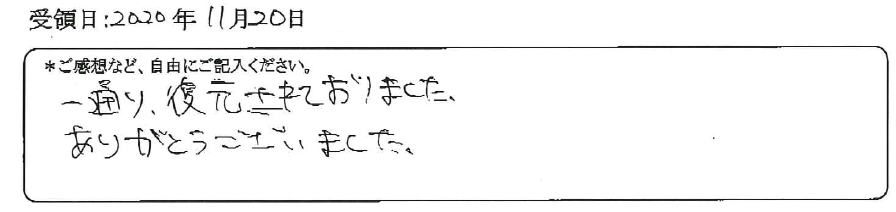 受領日:2020年11月20日
*ご感想など、自由にご記入ください。
一通り、復元されておりました、
ありがとうございました。